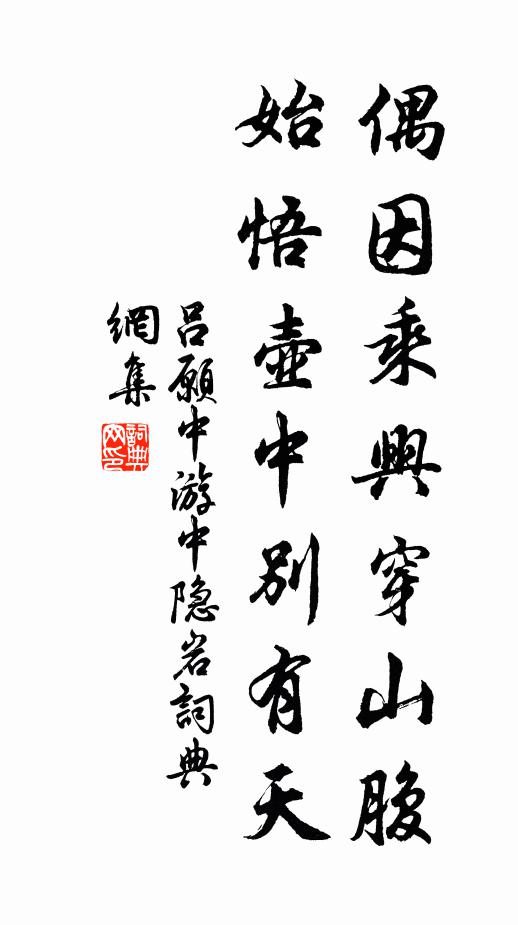 偶因乘興穿山腹
始悟壺中別有天
呂願中游中隐岩詞典
網集
詞典
网印